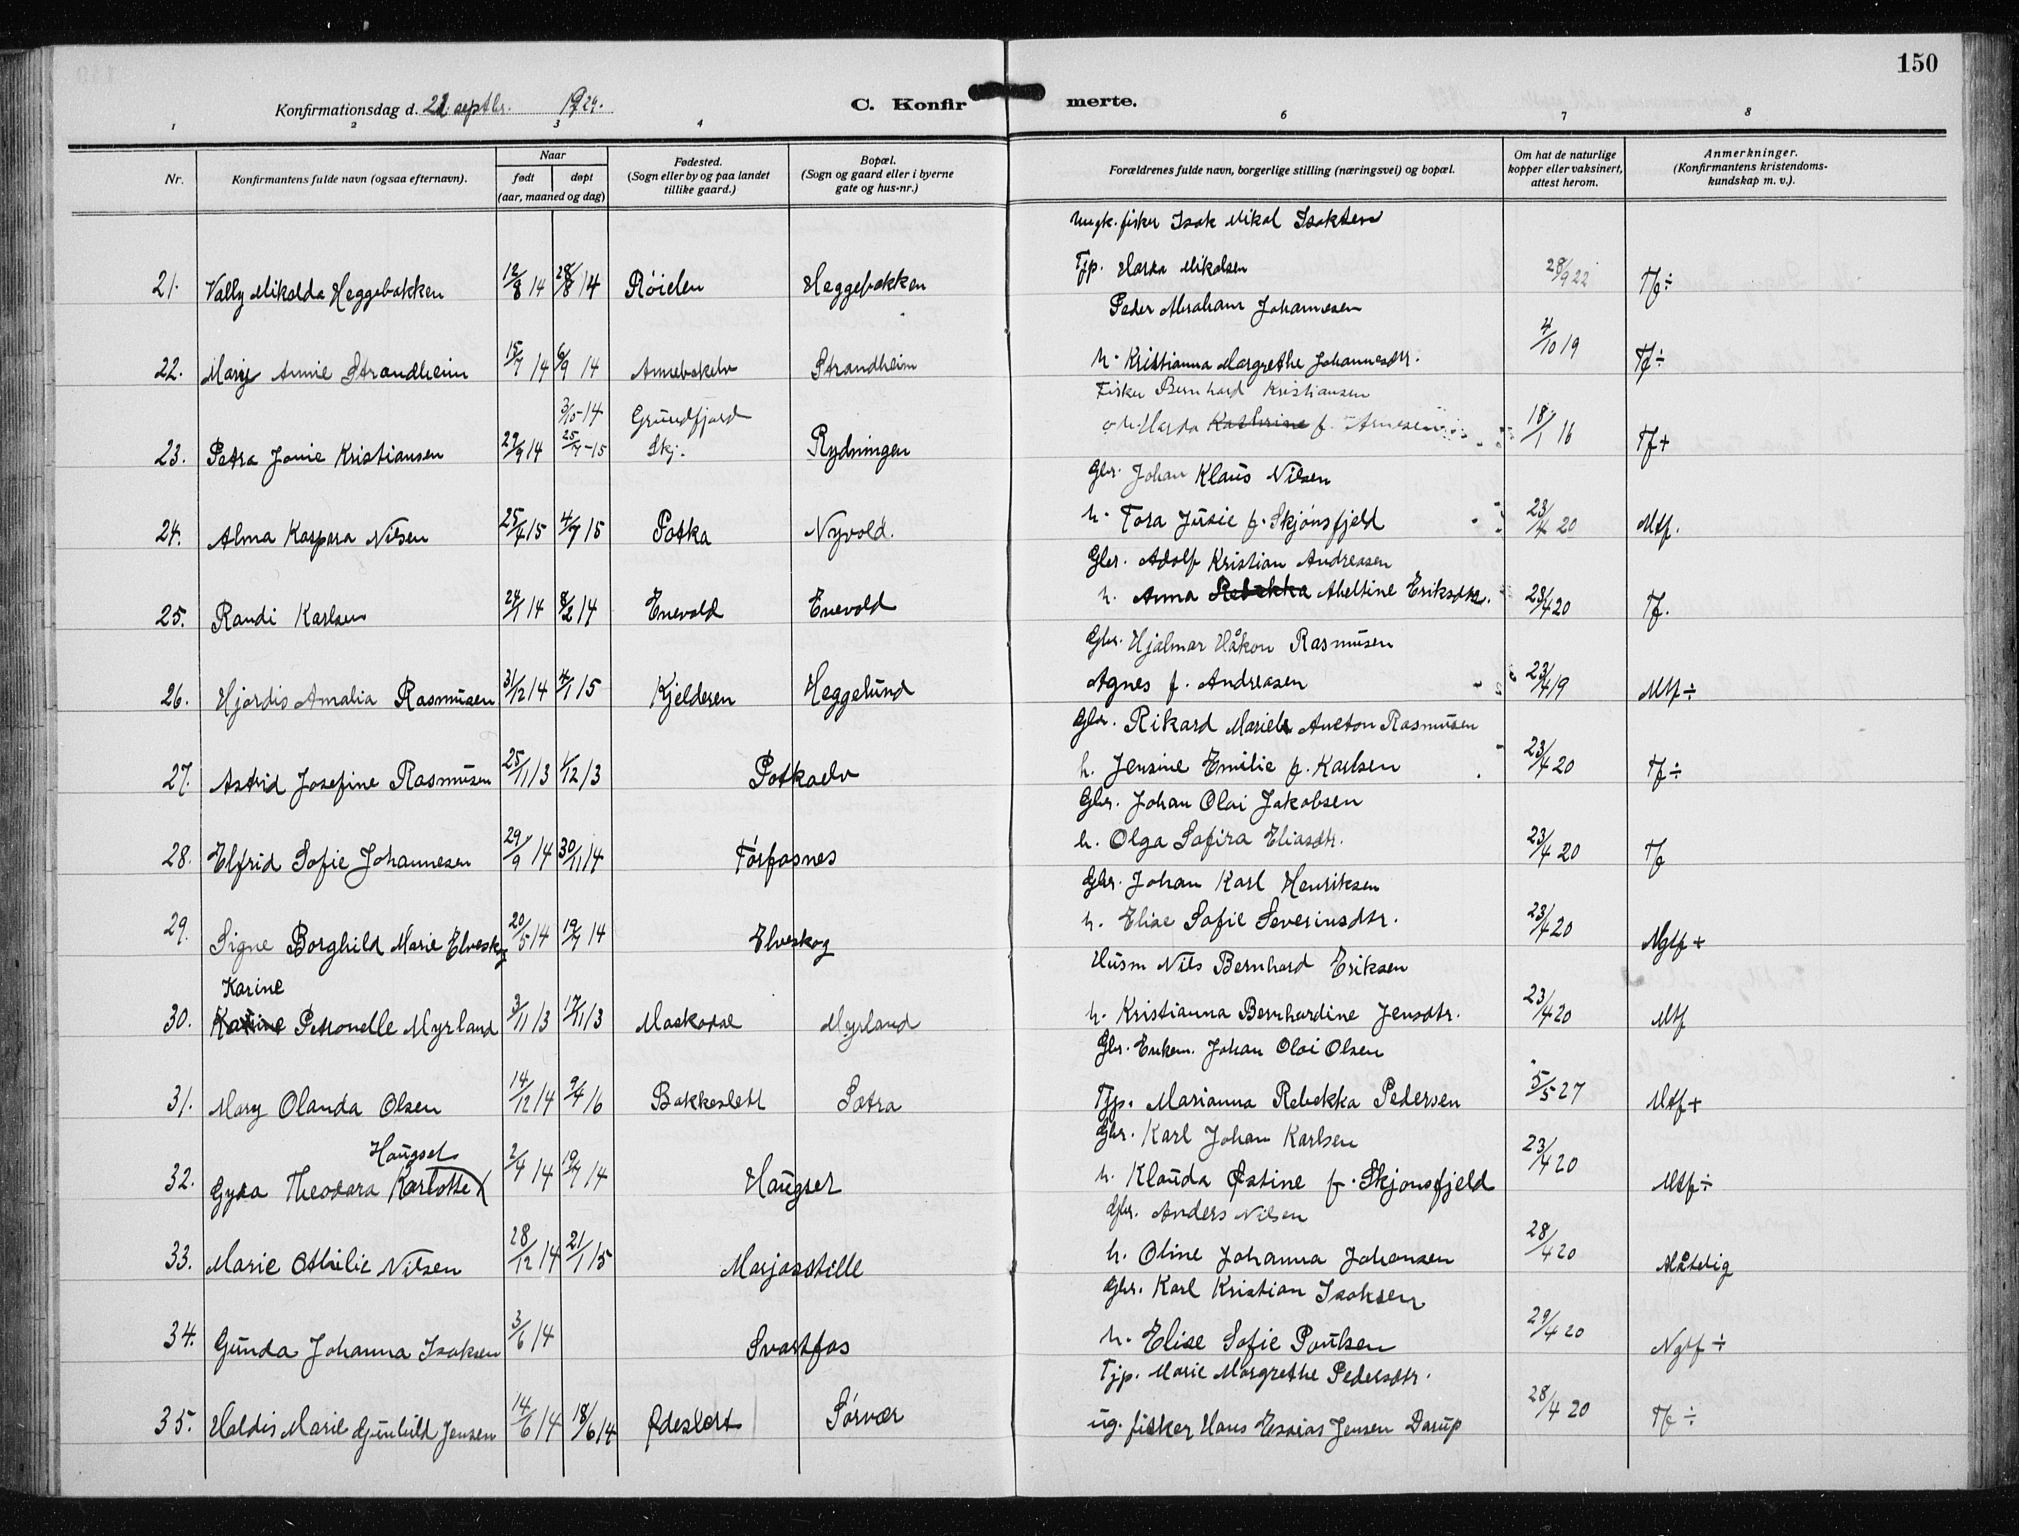 150
Konfirmationsdag d. 22 septbr. 1929.
C. Konfirmerte.
1 2 3 4 6 7 8
Nr.
Konfirmantens fulde navn (ogsaa efternavn).
Naar
født døpt
(aar, maaned og dag)
Fødested.
(Sogn eller by og paa landet
tillike gaard.)
Bopæl.
(Sogn og gaard eller i byerne
gate og hus-nr.)
Forældrenes fulde navn, borgerlige stilling (næringsvei) og bopæl.
Om hat de naturlige
kopper eller vaksinert,
attest herom.
Anmerkninger.
(Konfirmantens kristendoms-
kundskap m. v.).
Ungk. fisker Isak Mikal Isaksen
Tjp. Harda Mikalsen
21. Vally Mikalda Heggebakken 12/8 14 28/8 14 Röielen Heggebakken 28/9 22 Tf ÷
Peder Abraham Johannesen
22. Mary Annie Strandheim 15/7 14 6/9 14 Annebakelv Strandheim h. Kristianna Margrethe Johannesdtr. 4/10 19 Tf ÷
Fisker Bernhard Kristiansen
3/10-14 Grundfjord
o.h. Harda Kathrine f. Arnesen
23. Petra Jonie Kristiansen 27/9 14 25/7-15 Skj. Rydningen 18/1 16 Tf +
Gbr. Johan Klaus Nilsen
24. Alma Kaspara Nilsen 25/4 15 4/7 15 Potka Nyvold. h. Tora Jusie f. Skjönsfjeld 23/4 20 Mtf.
Gbr. Adolf Kristian Andreasen
25. Randi Karlsen 24/1 14 8/2 14 Enevold Enevold h. Anna Rebekka Abeltine Eriksdtr. 23/4 20 Tf.
Gbr. Hjalmar Håkon Rasmusen
26. Hjørdis Amalia Rasmusen 31/12 14 4/1 15 Kjelderen Heggelund Agnes f. Andreasen 23/4 19 Mtf ÷
Gbr. Rikard Mariels Aneton Rasmusen
27. Astrid Josefine Rasmusen 25/11 13 1/12 13 Potkaelv h. Jensine Emilie f. Karlsen 23/4 20 Tf ÷
Gbr. Johan Olai Jakobsen
28. Elfrid Sofie Johannesen 29/9 14 30/11 14 Torfosnes h. Olga Safira Eliasdtr. 23/4 20 Tf
Gbr. Johan Karl Henriksen
29. Signe Borghild Marie Elveskog 20/5 14 19/7 14 Elveskog h. Elise Sofie Severinsdtr. 23/4 20 Mgtf +
Husm Nils Bernhard Eriksen
Karine
30. Karine Petronelle Myrland 3/11 13 17/11 13 Maskodal Myrland h. Kristianna Bernhardine Jensdtr. 23/4 20 Mtf
Gbr. Enkem. Johan Olai Olsen
31. Mary Olanda Olsen 14/12 14 9/4 16 Bakkeslett Sætra Tjp. Marianna Rebekka Pedersen 5/5 27 Mtf +
Gbr. Karl Johan Karlsen
Haugset
32. Gyda Theodora Karlotte 2/4 14 19/7 14 Haugset h. Klauda Østine f. Skjønsfjeld 23/4 20 Mtf ÷
Gbr. Anders Nilsen
33. Marie Othilie Nilsen 28/12 14 21/1 15 Marjasstille h. Oline Johanna Johansen 28/4 20 Måtelig
Gbr. Karl Kristian Isaksen
34. Gunda Johanna Isaksen 3/6 14 Svartfos h. Elise Sofie Poulsen 29/4 20 Ngtf ÷
Tjp. Marie Margrethe Pedersdtr.
35. Haldis Marie Gunhild Jensen 14/6 14 18/6 14 Ødeslett Sørvær ug. fisker Hans Esaias Jensen Darup 28/4 20 Tf ÷